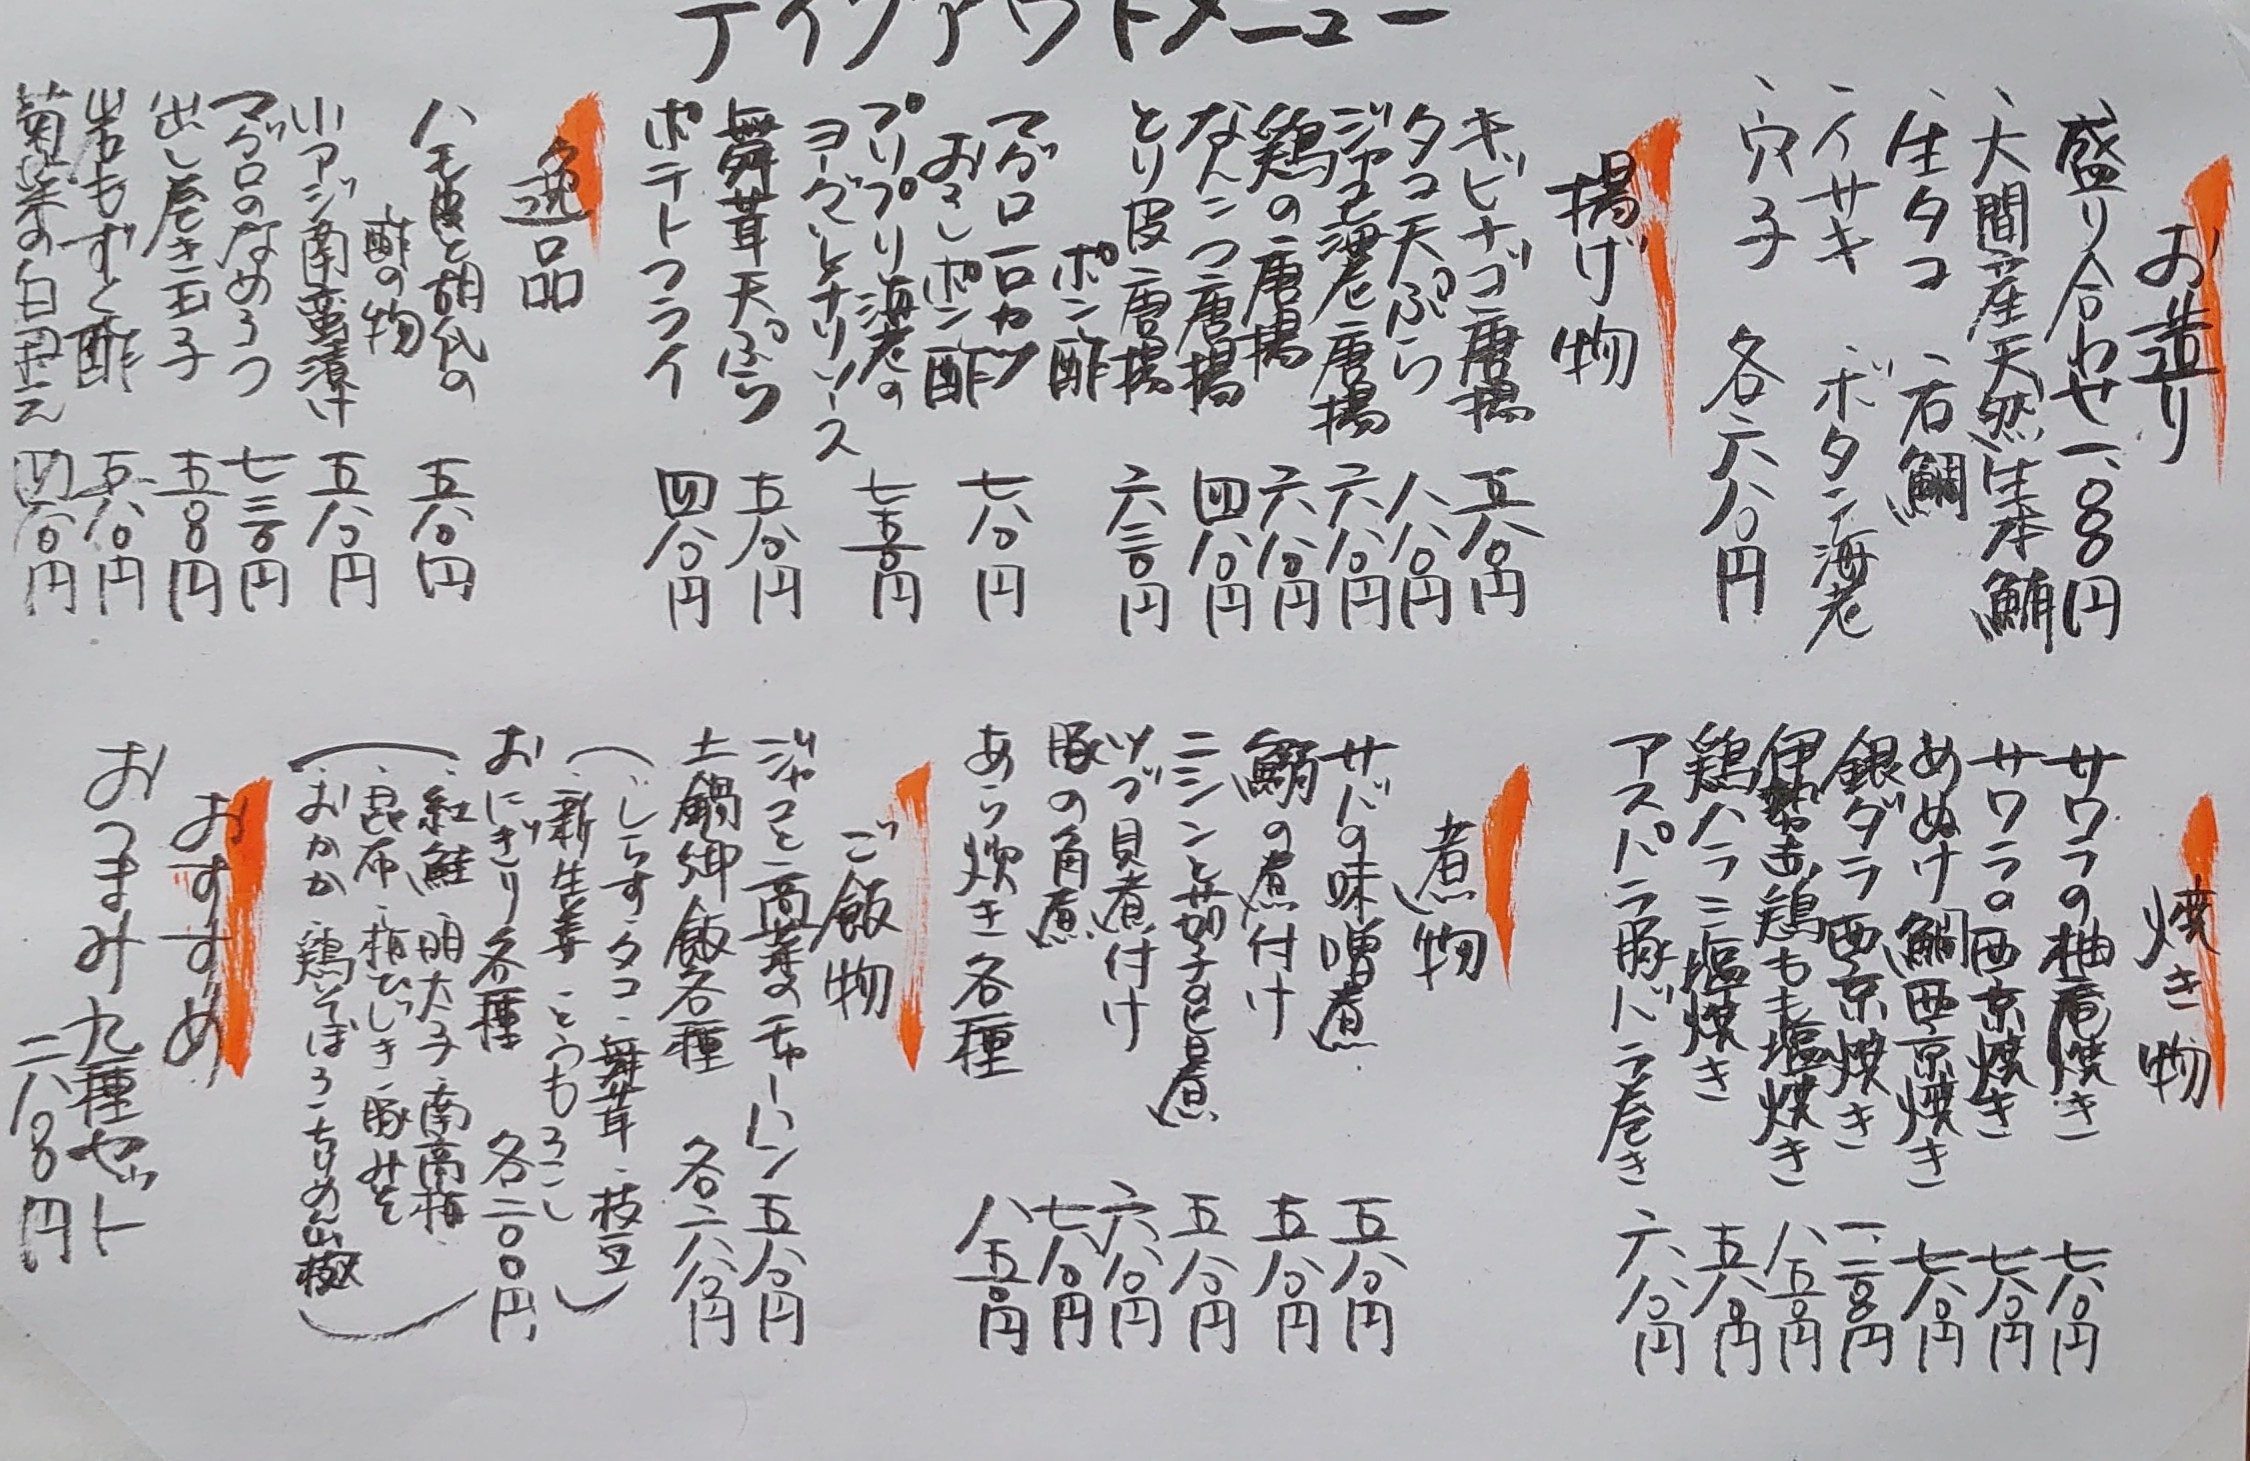 テイクアウトメニュー
お造り
盛り合わせ 一、八〇〇円
、大間産天然生本鮪
、生タコ 、石鯛
、イサキ 、ボタン海老
、穴子 各六八〇円
揚げ物
キビナゴ唐揚 五八〇円
タコ天ぷら 八八〇円
ジャンボ海老唐揚 六八〇円
鶏の唐揚 六八〇円
なんこつ唐揚 四八〇円
とり皮唐揚
ポン酢 六三〇円
マグロ一口カツ
おろしポン酢 七八〇円
プリプリ海老の
ヨーグルトチリソース 七五〇円
舞茸天ぷら 五八〇円
ポテトフライ 四八〇円
逸品
ハモ皮と胡瓜の
酢の物 五八〇円
小アジ南蛮漬け 五八〇円
マグロのなめろう 七三〇円
出し巻き玉子 五五〇円
岩もずく酢 五八〇円
菊菜の白和え 四八〇円
焼き物
サワラの柚庵焼き 七八〇円
サワラの西京焼き 七八〇円
あぬけ鯛西京焼き 七八〇円
銀ダラ西京焼き 一、二〇〇円
伊勢赤鶏もも塩焼き 八五〇円
鶏ハラミ塩焼き 五八〇円
アスパラ豚バラ巻き 六八〇円
煮物
サバの味噌煮 五八〇円
鰯の煮付け 五八〇円
ニシンと茄子の煮 五八〇円
ツブ貝煮付け 六八〇円
豚の角煮 七八〇円
あら炊き各種 八五〇円
ご飯物
ジャコと高菜のチャーハン 五八〇円
土鍋御飯各種 各二、六八〇円
（、しらす、タコ、舞茸、枝豆
、新生姜 とうもろこし）
おにぎり各種 各二〇〇円
（、紅鮭、明太子、南高梅
、昆布、梅ひじき、豚みそ
、おかか、鶏そぼろ、ちりめん山椒）
おすすめ
おつまみ九種セット
二、八〇〇円